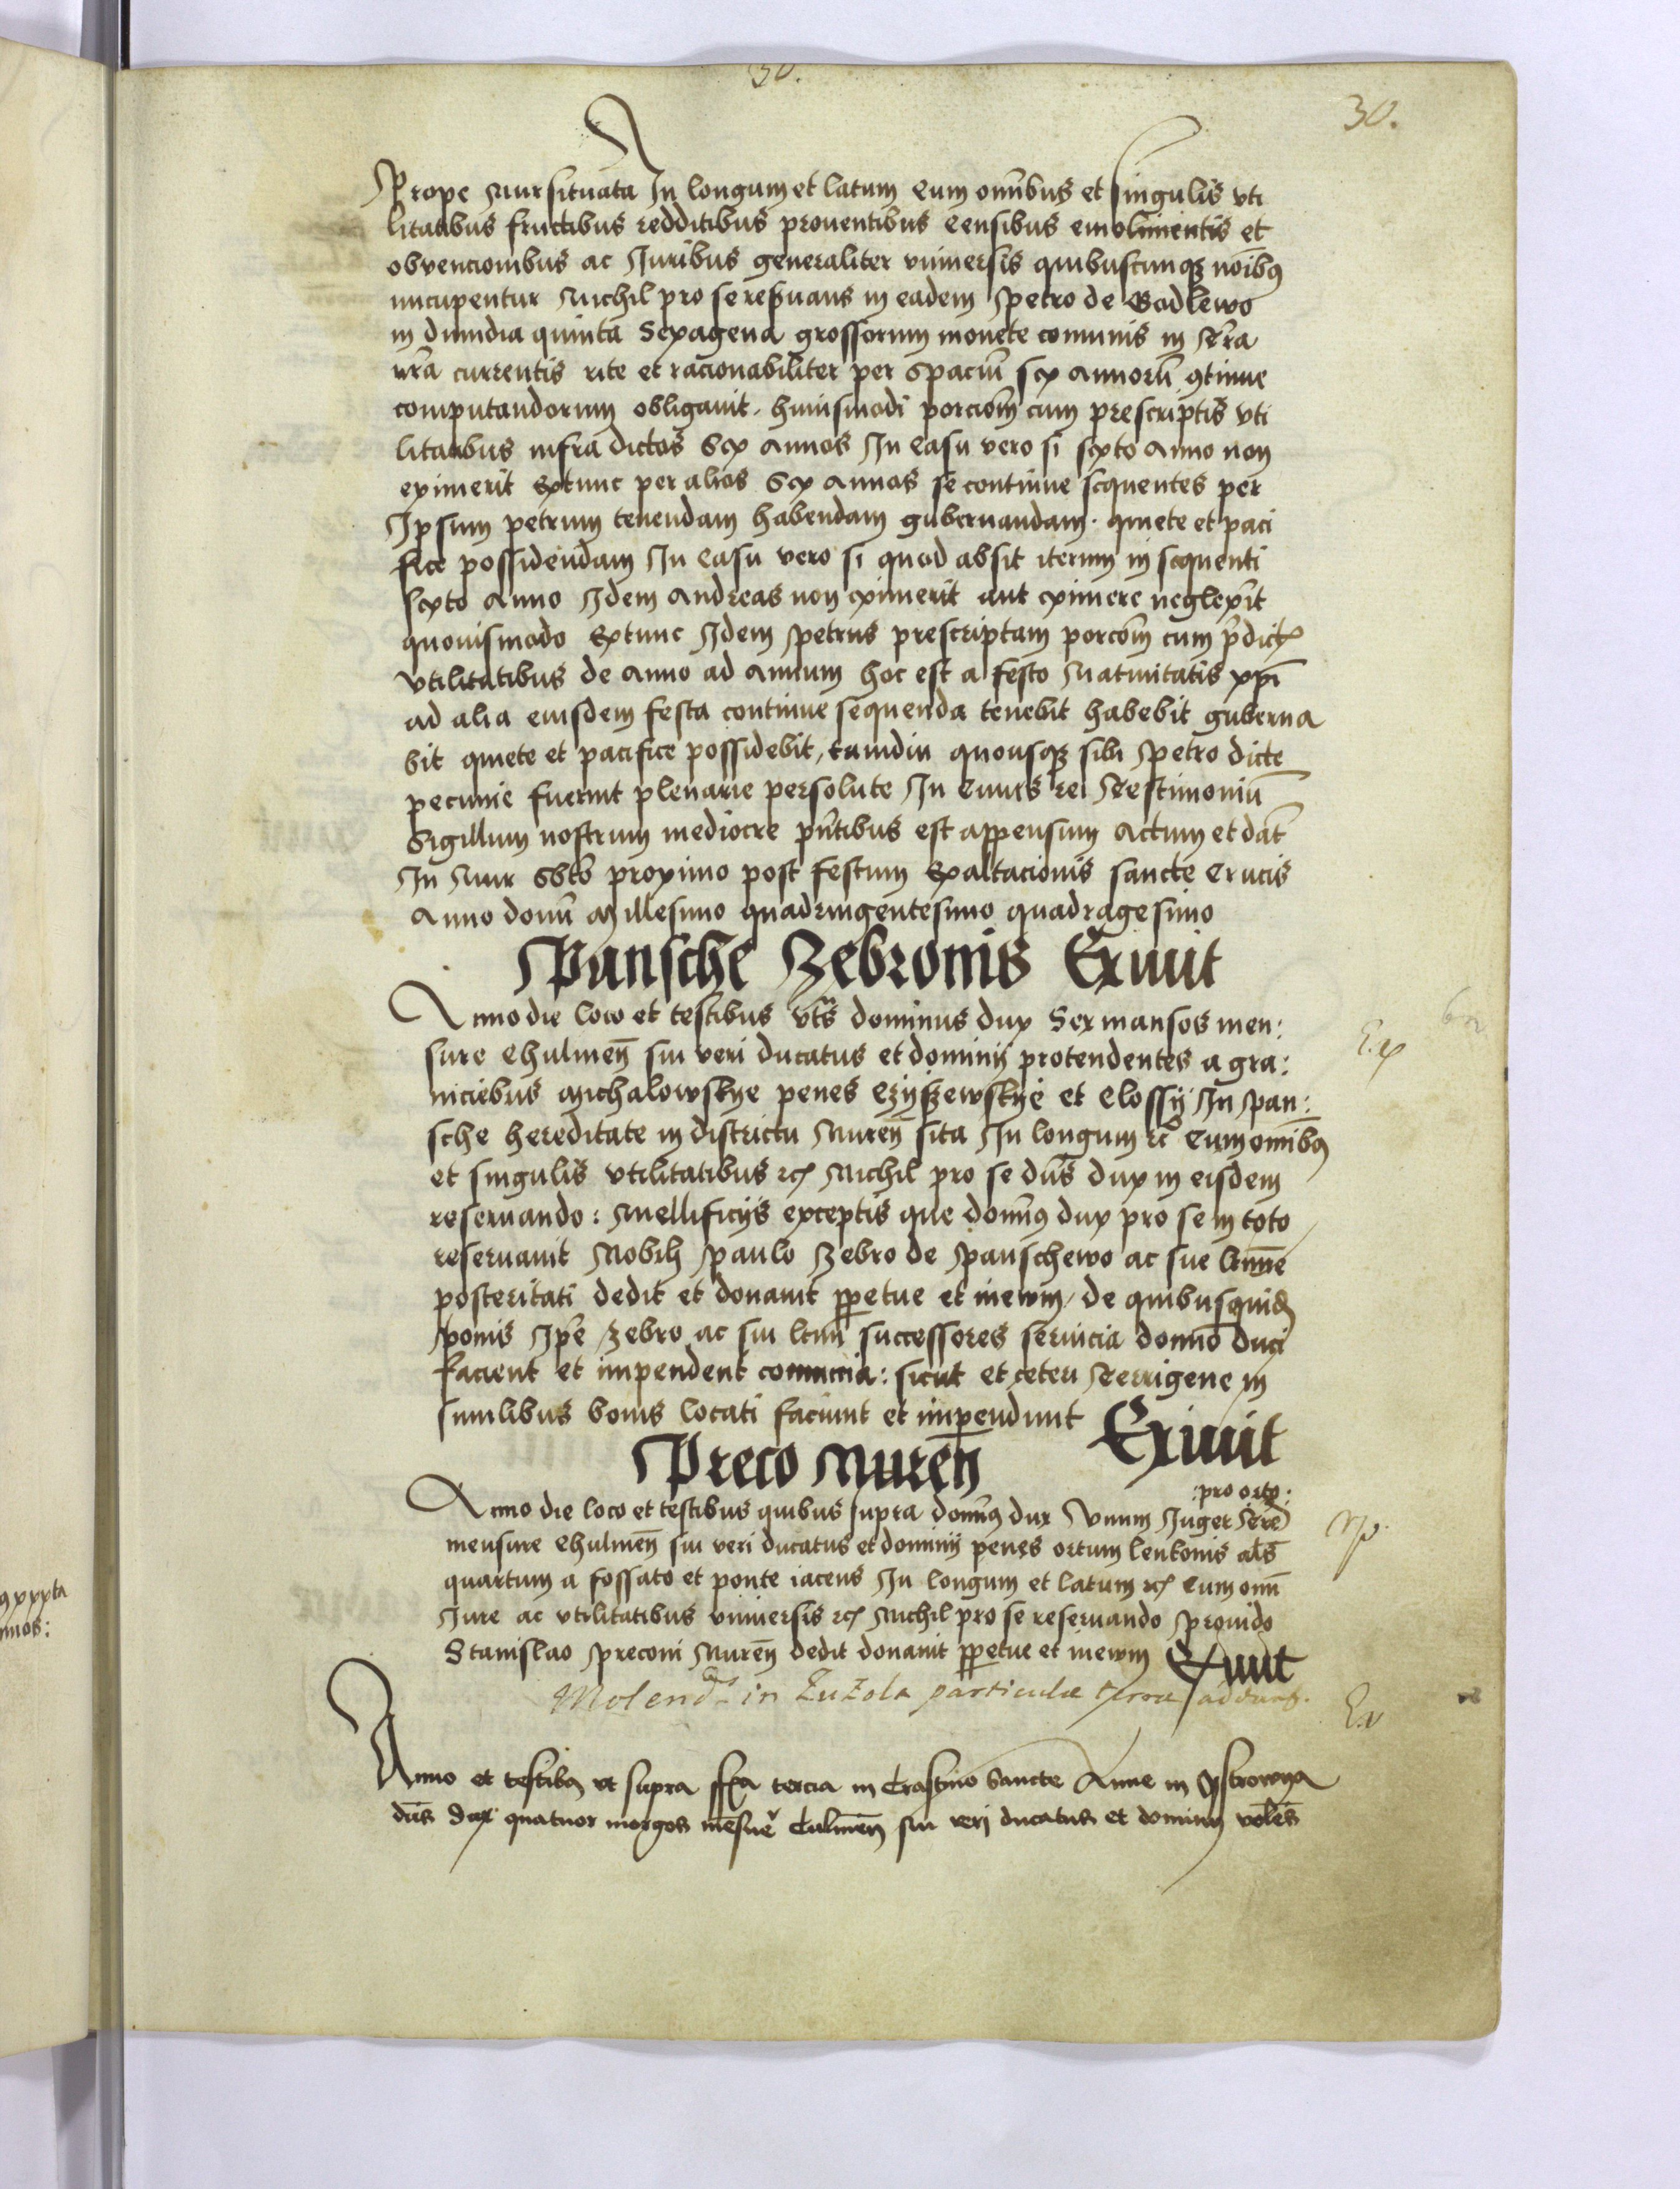 30.
30.
Prope Nur situata In longum et latum Cum omībus et singulis vti
litatibus fructibus redditibus prouentibus Censibus emolimentis et
obvencionibus ac Juribus generaliter vniuersis quibuscunqꝫ noībꝯ
nuncupentur Nichil pro se reseruans in eadem Petro de Godlewo
in dimidia quinta Sexagena grossorum monete comunis in Terra
nr̄a currentis rite et racionabiliter per spaciū sex annorū ꝯtinue
computandorum obligauit. huiusmodi porcioēm cum prescriptis vti
litatibus infra dictos Sex annos In Casu vero si sexto Anno non
exīmerit Extunc per alios Sex annos se continue sequentes per
Ipsum petrum tenendam habendam gubernandam. quiete et paci
fice possidendam In Casu vero si quod absit iterum in sequenti
sexto Anno Idem Andreas non eximerit aut eximere neglexīt
quouismodo Extunc Idem Petrus prescriptam porcoēm cum p̄dictꝭ
vtilitatibus de Anno ad Annum hoc est a festo Natiuitatis xp̄i
ad alia eiusdem festa continue sequenda tenebit habebit guberna
bit quiete et pacifice possidebit, tamdiu quousqꝫ sibi Petro dicte
pecunie fuerint plenarie persolute In Cuius rei Testimoniū
Sigillum nostrum mediocre pn̄tibus est appensum Actum et dat̄
In Nur Sbto proximo post festum Exaltacionis sancte Crucis
Anno domī Millesimo quadringentesimo quadragesimo
Pansche Zebronis Exiuit
Anno die loco et testibus vts̄ dominus dux Sex mansos men:
sure Chulmen̄ sui veri ducatus et dominij protendentes a gra:
niciebus Michalowskye penes Czyszewskye et Clossy In Pan:
sche hereditate in districtu Nuren̄ sita In longum etc̄ Cum omībꝯ
et singulis vtilitatibus etc̄ Nichil pro se dn̄s dux in eisdem
reseruando: Mellificijs exceptis que domn̄ꝯ dux pro se in toto
reseruauit Nobili Paulo Zebro de Panschewo ac sue ltīme
posteritati dedit et donauit ꝑpetue et inewm, de quibusquidē
bonis Ip̄e Zebro ac sui ltm̄i successores seruicia domn̄o duci
facient et impendent comunia: sicut et ceteri Terrigene in
similibus bonis locati faciunt et impendunt
Exiuit
Preco Nuren̄
:pro orto:
Anno die loco et testibus quibus supra domn̄ꝯ dux Vnum Juger Terre
mensure Chulmen̄ sui veri ducatus et dominij penes ortum lenkonis als̄
quartum a fossato et ponte iacens In longum et latum etc̄ Cum omī
Jure ac vtilitatibus vniuersis etc̄ Nichil pro se reseruando Prouido
Stanislao Preconi Nuren̄ dedit donauit ꝑpetue et inewm Exiuit
Molend. in Zuzola particula terrae
Anno et testibꝯ ut supra fferia tercia in Crastino Sancte Anne in Ostrowya
dn̄s dux quatuor morgos mēsure Culmen̄ sui veri ducatus et dominij volēs
E.x
Np.
Ex